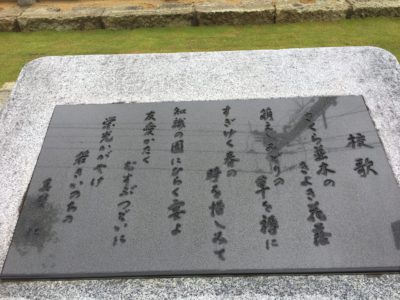 校歌
さくら並木の
きよき花蔭
萌えしみどりの
草を褥に
すぎゆく春の
時を惜しみて
知識の園にひらく宴よ
友愛かたく
むすぶつどいに
栄光かがやけ
若きいのちの